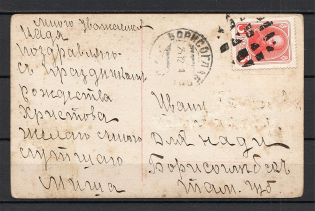 много Уважаемая
Надя
поздравляю
съ праздникомъ
рождества
Христова
желаю много
лутшаго
Миша
БОРИСОГЛ
Ивану
для нади
Борисоглебск
Там. губ